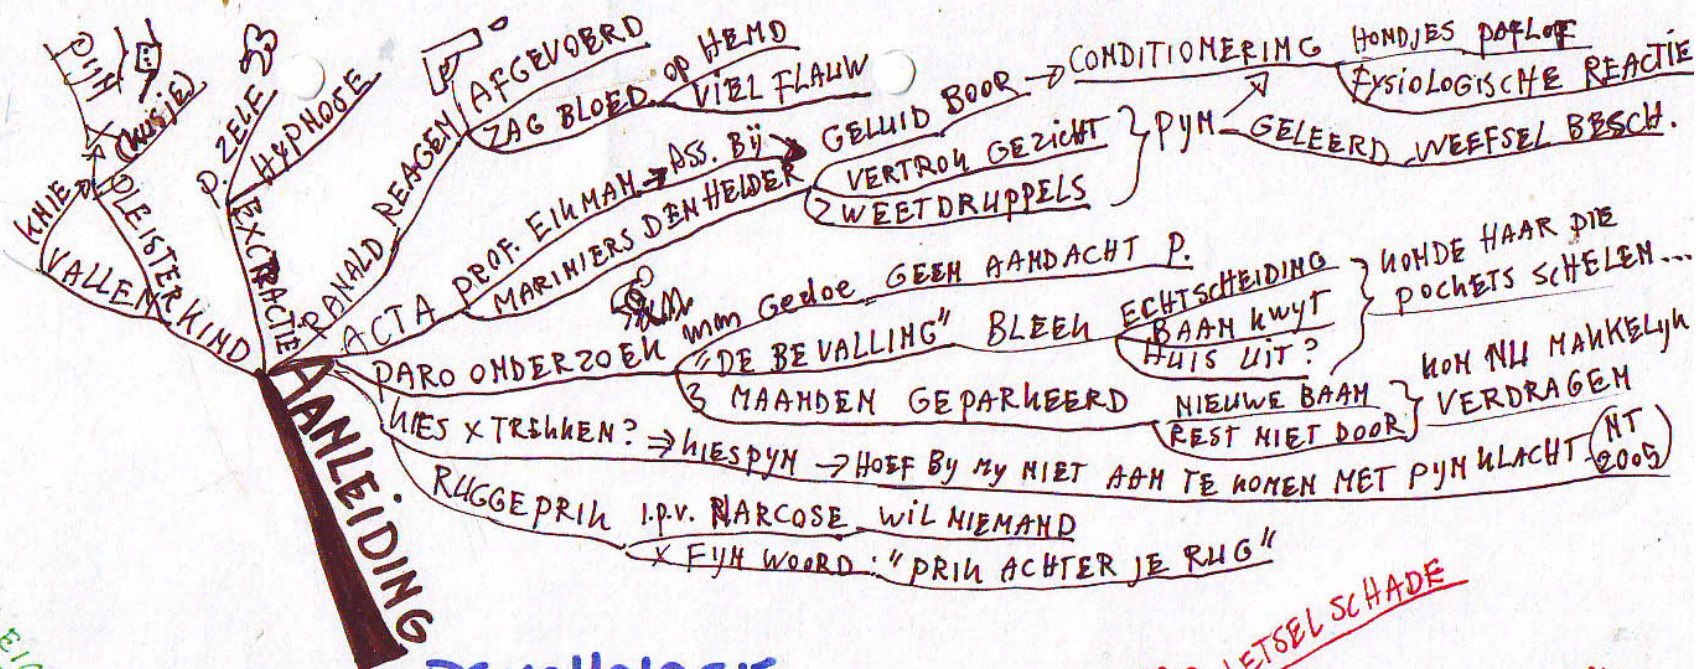 AANLEIDING
PLEISTERKIND
VALLEN
KNIE
PIJN
(KUSJE)
EXCTRACTIE
P. ZELF
HYPNOSE
RANALD REAGEN
AFGEVOERD
ZAG BLOED OP HEMD
VIEL FLAUW
ACTA
PROF. EIKMAN → ASS. BIJ
MARINIERS DEN HELDER
GELUID BOOR → CONDITIONERING
HONDJES PAFLOF
FYSIOLOGISCHE REACTIE
VERTROK GEZICHT
ZWEETDRUPPELS
PIJN
GELEERD WEEFSEL BESCH.
PARO ONDERZOEK
Gedoe GEEN AANDACHT P.
"DE BEVALLING" BLEEK
ECHTSCHEIDING
BAAN KWIJT
HUIS UIT?
KONDE HAAR DIE
POCKETS SCHELEN...
3 MAANDEN GEPARKEERD
NIEUWE BAAN
REST NIET DOOR
KON NU MAKKELIJK
VERDRAGEN
KIES X TREKKEN? ⇒ KIESPIJN → HOEF BIJ MIJ NIET AAN TE KOMEN MET PIJNKLACHT
NT
2005
RUGGEPRIK I.P.V. NARCOSE WIL NIEMAND
X FIJN WOORD: "PRIK ACHTER JE RUG"
LETSELSCHADE